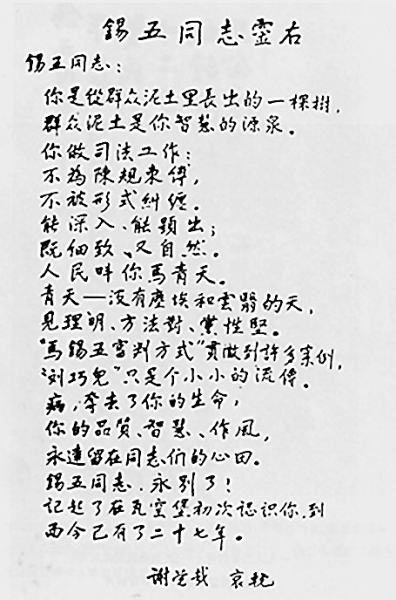 錫五同志靈右
錫五同志:
你是從群众泥土里長出的一棵樹,
群众泥土是你智慧的源泉。
你做司法工作:
不為陳規束縛,
不被形式糾纏。
能深入、能顯出;
既细致、又自然。
人民叫你馬青天。
青天—没有塵埃和雲翳的天,
見理明、方法對、黨性堅。
"馬錫五審判方式"貫徹到許多案例,
"刘巧兒"只是个小小的流傳。
病,奪去了你的生命,
你的品質、智慧、作風,
永遠留在同志们的心田。
錫五同志,永别了!
記起了在瓦窑堡初次認識你,到
而今已有了二十七年。
謝覺哉 哀輓